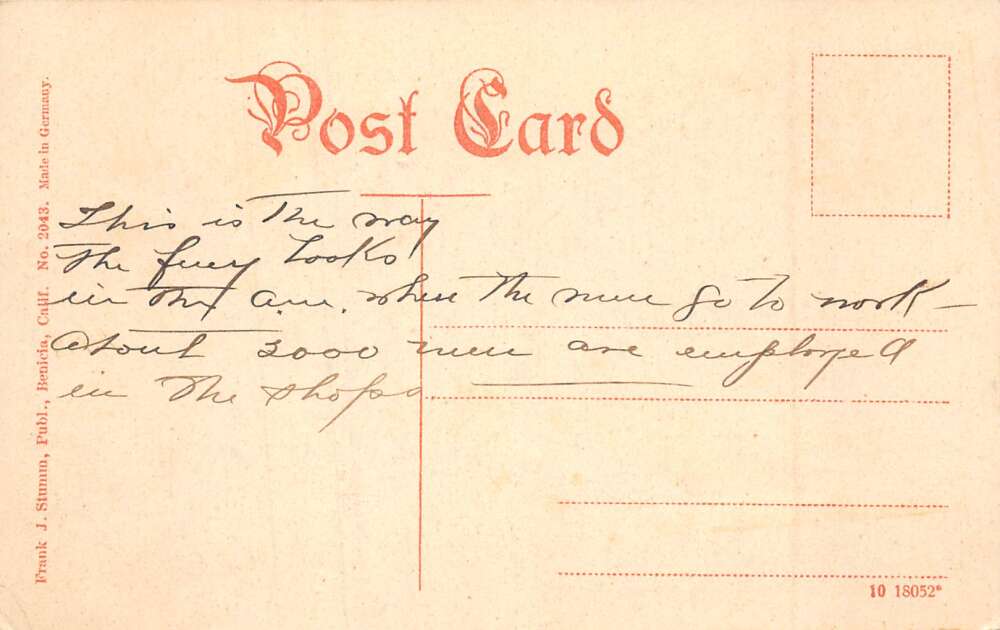 Post Card
This is the way
the ferry looks
in the a.m. when the men go to work —
about 3000 men are employed
in the shops
Frank J. Stumm, Publ., Benicia, Calif. No. 2043. Made in Germany.
10 18052*